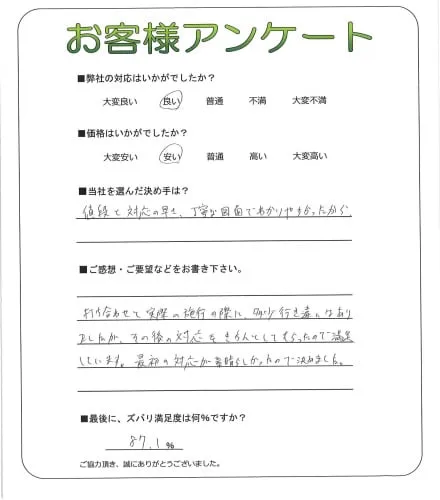 お客様アンケート
■弊社の対応はいかがでしたか?
大変良い 良い 普通 不満 大変不満
■価格はいかがでしたか?
大変安い 安い 普通 高い 大変高い
■当社を選んだ決め手は?
値段と対応の早さ、丁寧な図面でわかりやすかったから
■ご感想・ご要望などをお書き下さい。
打ち合わせて実際の施行の際に、多少行き違いはあり
ましたが、その後の対応をきちんとしてもらったので満足
しています。最初の対応が素晴らしかったので決めました。
■最後に、ズバリ満足度は何%ですか?
87.1%
ご協力頂き、誠にありがとうございました。